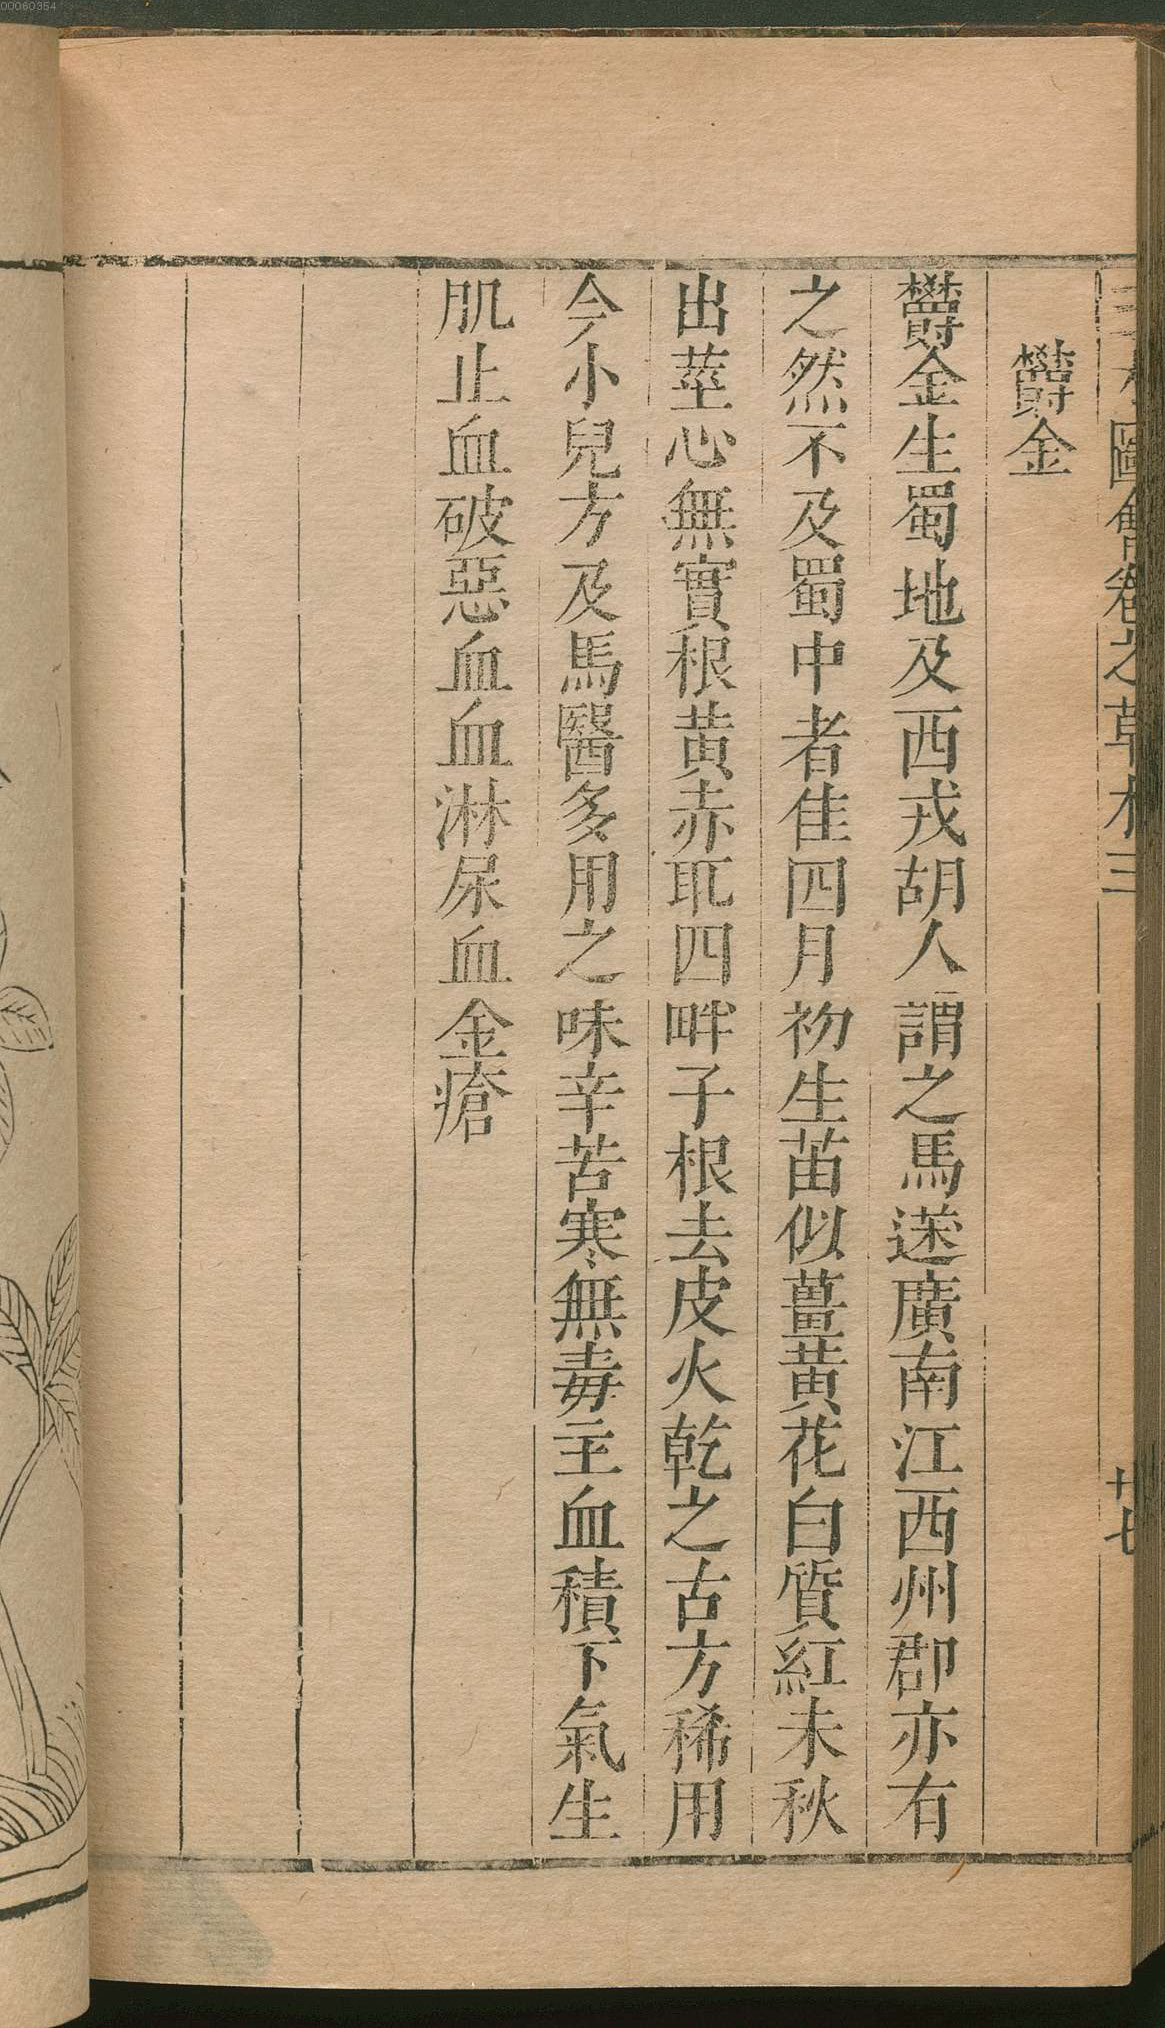 00060354
圖會卷之草木三
廿七
欝金
欝金生蜀地及西戎胡人謂之馬蒁廣南江西州郡亦有
之然不及蜀中者佳四月初生苗似薑黃花白質紅未秋
出莖心無實根黃赤取四畔子根去皮火乾之古方稀用
今小兒方及馬醫多用之味辛苦寒無毒主血積下氣生
肌止血破惡血血淋尿血金瘡